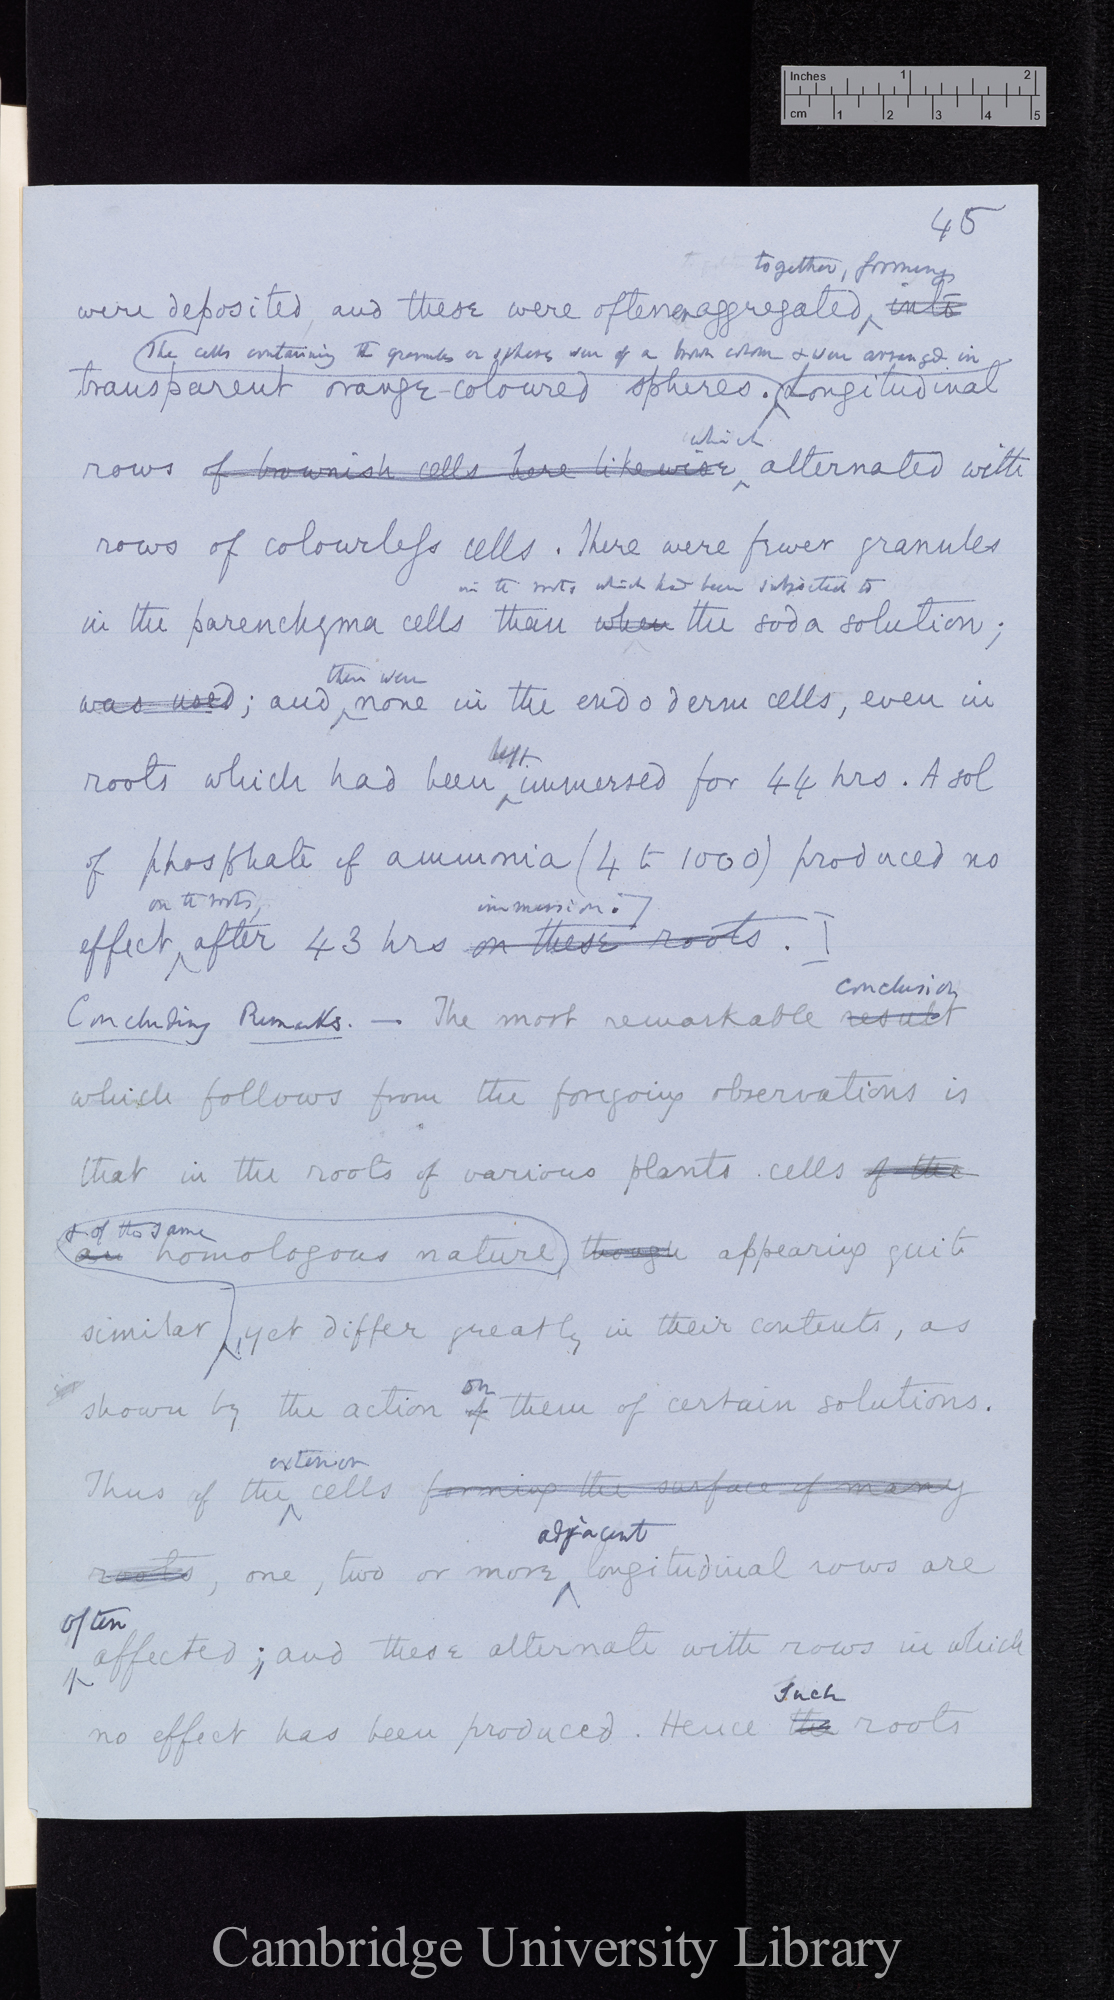 Inches 1 2
cm 1 2 3 4 5
45
together, forming
were deposited, and these were often aggregated, into
The cells containing the granules or spheres were of a brown colour & were arranged in
transparent orange-coloured spheres. Longitudinal
which
rows of brownish cells here likewise alternated with
rows of colourless cells. There were fewer granules
in the roots which had been subjected to
in the parenchyma cells than when the soda solution;
there were
was used; and none in the endoderm cells, even in
left
roots which had been immersed for 44 hrs. A sol
of phosphate of ammonia (4 to 1000) produced no
on the roots, immersion.]
effect after 43 hrs on these roots.
conclusion
Concluding Remarks. — The most remarkable result
which follows from the foregoing observations is
that in the roots of various plants cells of the
& of the same
an homologous nature, though appearing quite
similar, yet differ greatly in their contents, as
on
shown by the action of them of certain solutions.
exterior
Thus of the cells forming the surface of many
adjacent
roots, one, two or more longitudinal rows are
often
affected; and these alternate with rows in which
Such
no effect has been produced. Hence the roots
Cambridge University Library